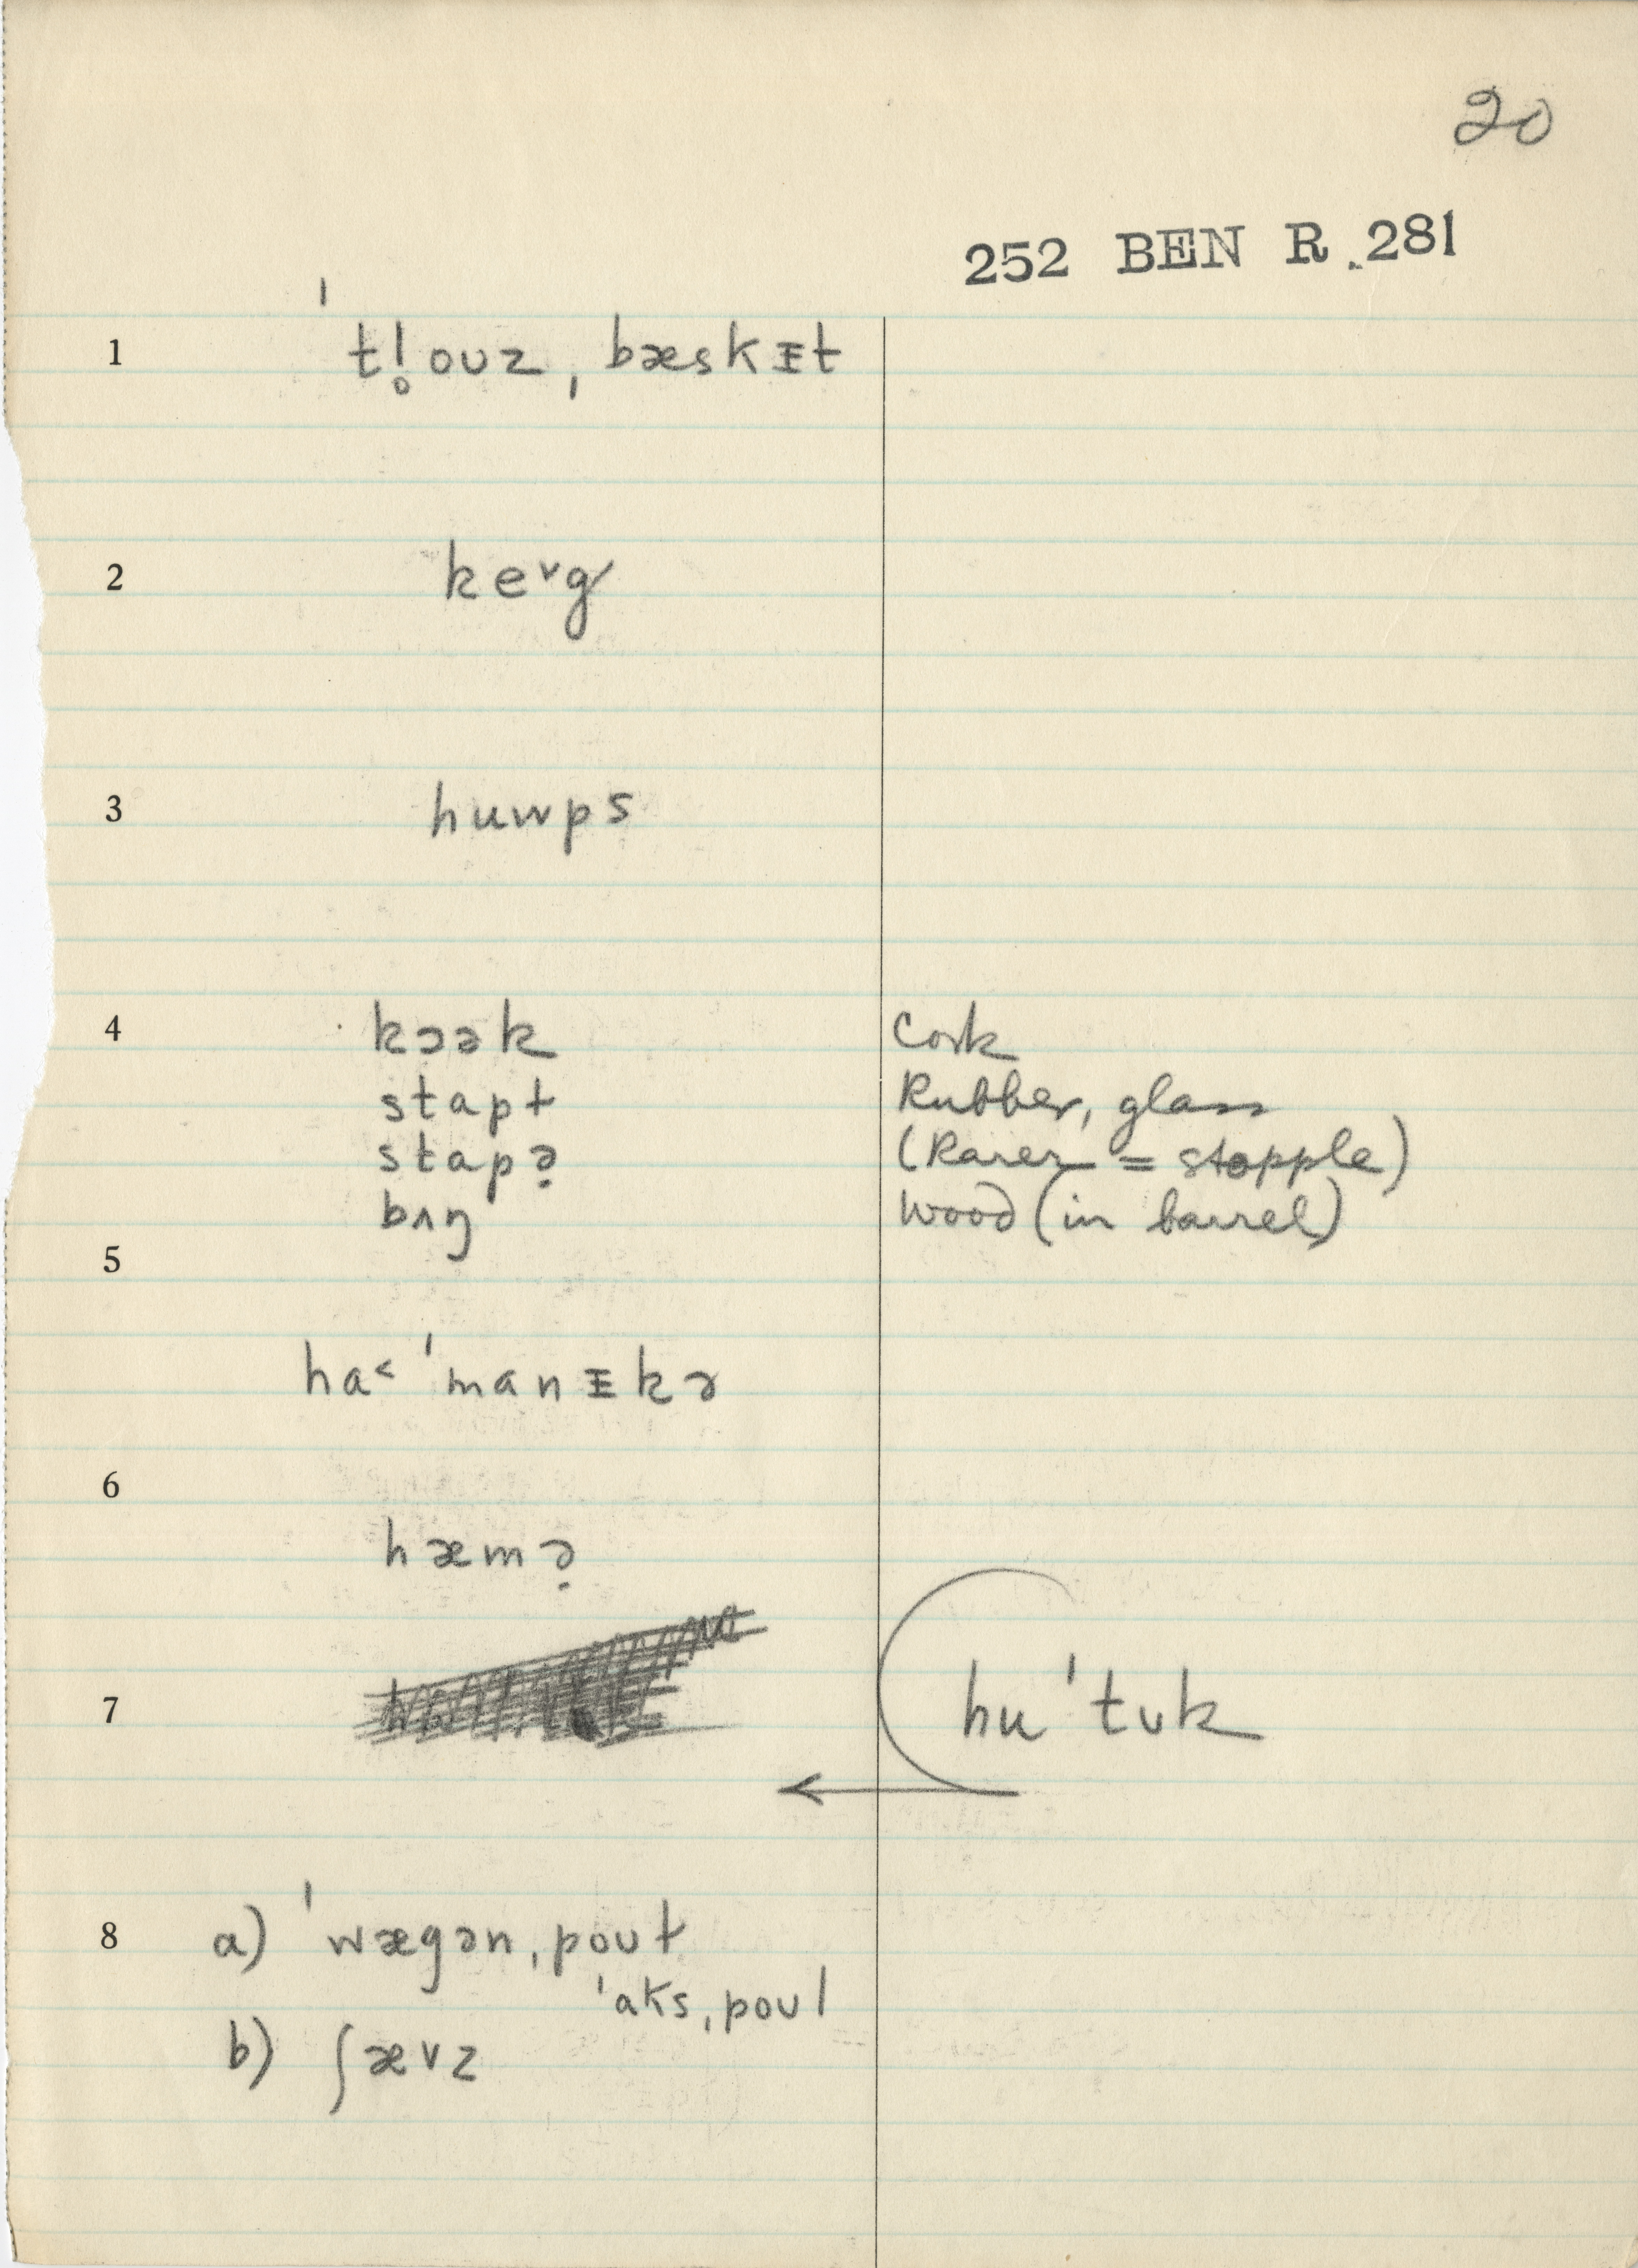 20
252 BEN R. 281
1 ˈtl̥ouz ˌbæskɪt
2 ke˅g
3 huwps
4 kɔək Cork
stapɫ Rubber, glass
stapə̣ (Rarer = stopple)
bʌŋ Wood (in barrel)
5
ha˂ˈmanɪkə
6
hæmə̣
7 huˈtʊk
8 a) ˈwægənˌpoʊɫ
ˈaksˌpoʊl
b) ʃævz